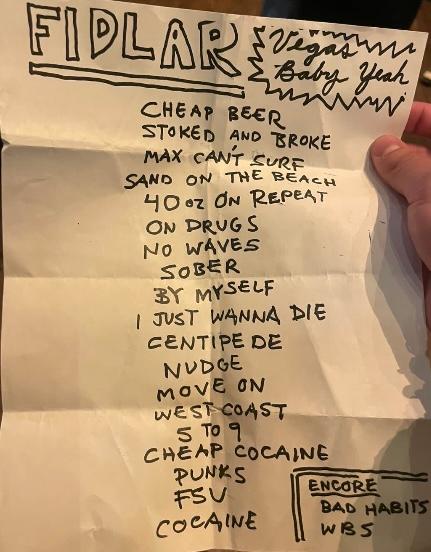 FIDLAR
Vegas
Baby Yeah
CHEAP BEER
STOKED AND BROKE
MAX CAN'T SURF
SAND ON THE BEACH
40 oz ON REPEAT
ON DRUGS
NO WAVES
SOBER
BY MYSELF
I JUST WANNA DIE
CENTIPEDE
NUDGE
MOVE ON
WEST COAST
5 TO 9
CHEAP COCAINE
PUNKS
FSU
COCAINE
ENCORE
BAD HABITS
WBS